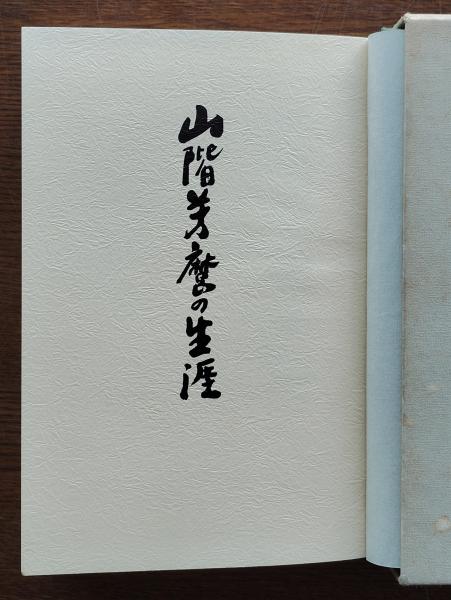 山階芳麿の生涯